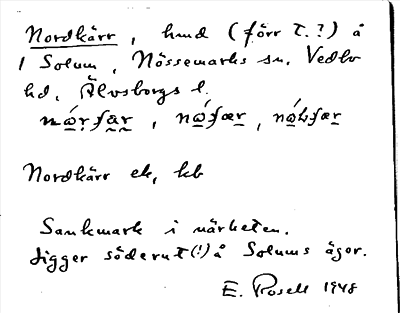 Nordkärr, hmd (förr t.?) å
1 Solum, Nössemarks sn. Vedbo
hd. Älvsborgs l.
Nordkärr ek, kb
Sankmark i närheten.
Ligger söderut(!) å Solums ägor.
E. Rosell 1948